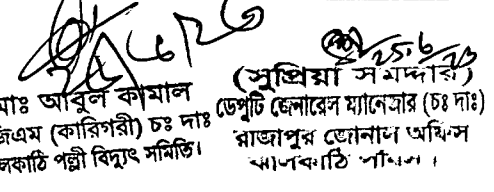 মোঃ আবুল কামাল
জিএম (কারিগরী) চঃ দাঃ
লকাঠি পল্লী বিদ্যুৎ সমিতি।
25.6/23
(সুপ্রিয়া সমদ্দার)
ডেপুটি জেনারেল ম্যানেজার (চঃ দাঃ)
রাজাপুর জোনাল অফিস
ঝালকাঠি পবিস।